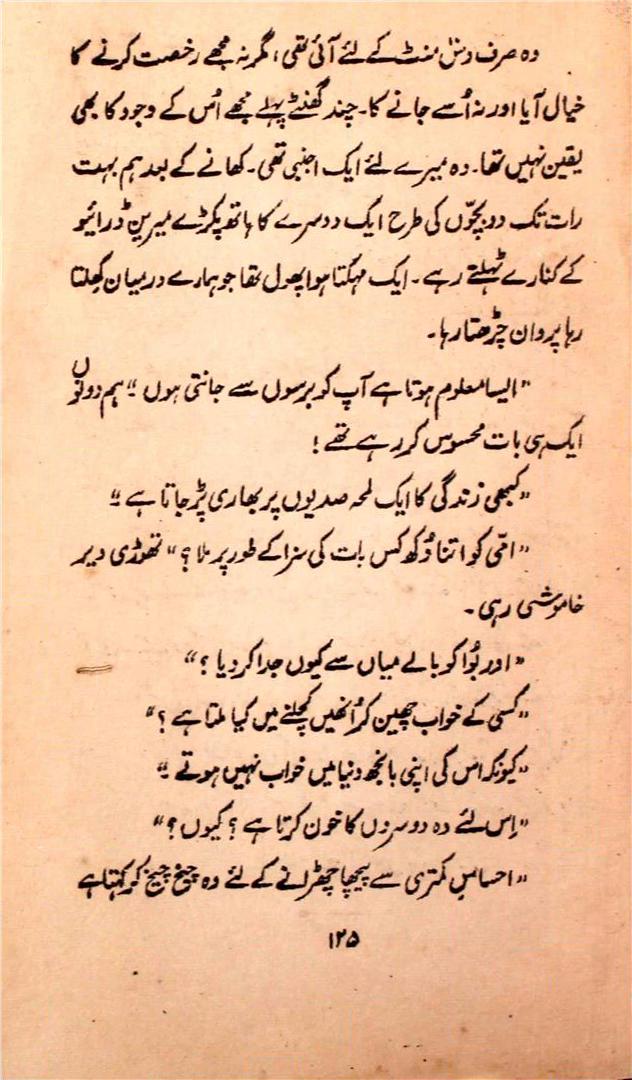 وہ صرف دس منٹ کے لئے آئی تھی، مگر نہ مجھے رخصت کرنے کا
خیال آیا اور نہ اُسے جانے کا۔ چند گھنٹے پہلے مجھے اُس کے وجود کا بھی
یقین نہیں تھا۔ وہ میرے لئے ایک اجنبی تھی۔ کھانے کے بعد ہم بہت
رات تک دو بچّوں کی طرح ایک دوسرے کا ہاتھ پکڑے میرین ڈرائیو
کے کنارے ٹہلتے رہے۔ ایک مہکتا ہوا پھول تھا جو ہمارے درمیان کِھلتا
رہا پروان چڑھتا رہا۔
"ایسا معلوم ہوتا ہے آپ کو برسوں سے جانتی ہوں۔" ہم دونوں
ایک ہی بات محسوس کر رہے تھے!
"کبھی زندگی کا ایک لمحہ صدیوں پر بھاری پڑ جاتا ہے۔"
"امّی کو اتنا دُکھ کس بات کی سزا کے طور پر ملا؟" تھوڑی دیر
خاموشی رہی۔
"اور بُوا کو بالے میاں سے کیوں جدا کر دیا؟"
"کسی کے خواب چھین کر اُنھیں کچلنے میں کیا ملتا ہے؟"
"کیونکہ اس کی اپنی بانجھ دنیا میں خواب نہیں ہوتے۔"
"اِس لئے وہ دوسروں کا خون کرتا ہے؟ کیوں؟"
"احساسِ کمتری سے پیچھا چھڑانے کے لئے وہ چیخ چیخ کر کہتا ہے
۱۲۵